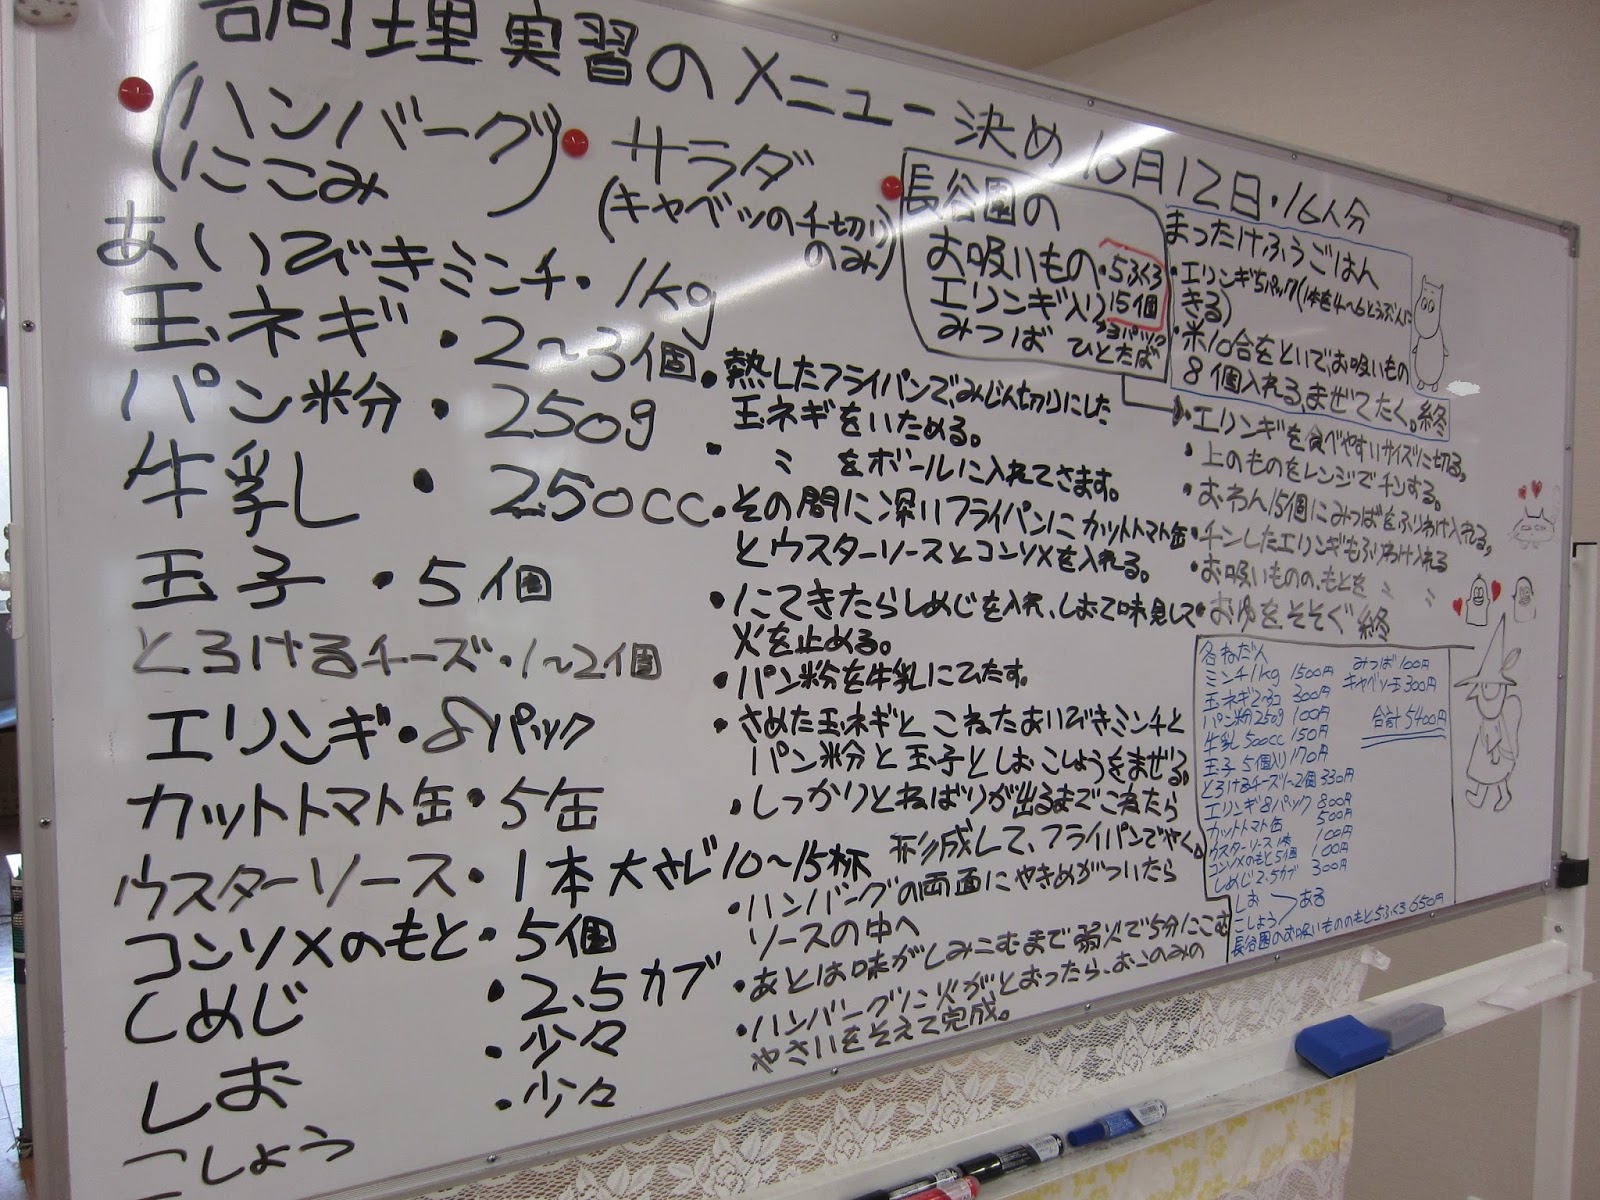 調理実習のメニュー決め 10月12日・16人分
(ハンバーグ)
(にこみ
サラダ
(キャベツの千切り
のみ)
あいびきミンチ・1kg
玉ネギ・2〜3個
パン粉・250g
牛乳・250cc
玉子・5個
とろけるチーズ・1〜2個
エリンギ・8パック
カットトマト缶・5缶
ウスターソース・1本 大さじ10〜15杯
コンソメのもと・5個
しめじ・2.5カブ
しお・少々
こしょう・少々
・熱したフライパンで、みじん切りにした
玉ネギをいためる。
・〃をボールに入れてさます。
・その間に深いフライパンにカットトマト缶
とウスターソースとコンソメを入れる。
・にてきたらしめじを入れ、しおで味見して
火を止める。
・パン粉を牛乳にひたす。
・さめた玉ネギと、こねたあいびきミンチと
パン粉と玉子としおこしょうをまぜる。
・しっかりとねばりが出るまでこねたら
形成して、フライパンでやく。
・ハンバーグの両面にやきめがついたら
ソースの中へ
・あとは味がしみこむまで弱火で5分にこむ
・ハンバーグに火がとおったら、おこのみの
やさいをそえて完成。
長谷園の
お吸いもの・5ふくろ
エリンギ入り 15個
3パック
みつば ひとたば
まったけふうごはん
・エリンギ5パック(1本を4〜6とうぶんに
きる)
・米10合をといで、お吸いもの
8個入れる、まぜてたく。終
・エリンギを食べやすいサイズに切る。
・上のものをレンジでチンする。
・おわん15個にみつばをふりわけ入れる。
・チンしたエリンギもふりわけ入れる
・お吸いもののもとを 〃 〃
・おゆをそそぐ 終
各ねだん
ミンチ1kg 1500円
玉ネギ2〜3コ 300円
パン粉250g 100円
牛乳500cc 150円
玉子5個入り 170円
とろけるチーズ1〜2個 330円
エリンギ8パック 800円
カットトマト缶 500円
ウスターソース1本 100円
コンソメのもと5個 100円
しめじ2.5カブ 300円
しお
こしょう ある
長谷園のお吸いもののもと5ふくろ 650円
みつば100円
キャベツ一玉300円
合計5400円